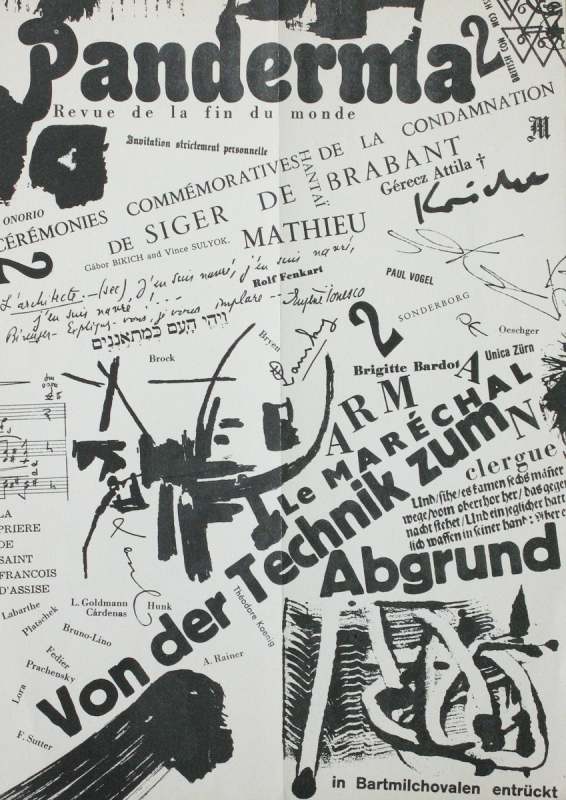 Panderma 2
Revue de la fin du monde
Invitation strictement personnelle
M
ONORIO
CÉRÉMONIES COMMÉMORATIVES DE LA CONDAMNATION
DE SIGER DE BRABANT
HANTAÏ
Gérecz Attila †
Gábor BIKICH and Vince SULYOK.
MATHIEU
2
L'architecte -- (sec) J'en suis navré, j'en suis navré,
j'en suis navré ! ...
Bérenger - Expliquez-vous, je vous implore -- Eugène Ionesco
Rolf Fenkart
PAUL VOGEL
ויהי העם כמתאננים
2
SONDERBORG
Oeschger
Bryen
Brock
Brigitte Bardot
Unica Zürn
ARMAN
Le MARÉCHAL
clergue
Und/sihe/es kamen sechs männer
wege/vom oberthor her/Das gegen
nacht stehet/Und ein jeglicher hatt
lich waffen in seiner hant:
Von der Technik zum
Abgrund
LA
PRIERE
DE
SAINT
FRANCOIS
D'ASSISE
Labarthe
L. Goldmann
Hunk
Théodore Koenig
Platschek
Cárdenas
Bruno-Lino
Fedier
Prachensky
A. Rainer
Lora
F. Sutter
in Bartmilchovalen entrückt